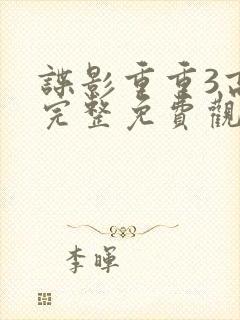 諜影重重3高
完整免費觀
李暉